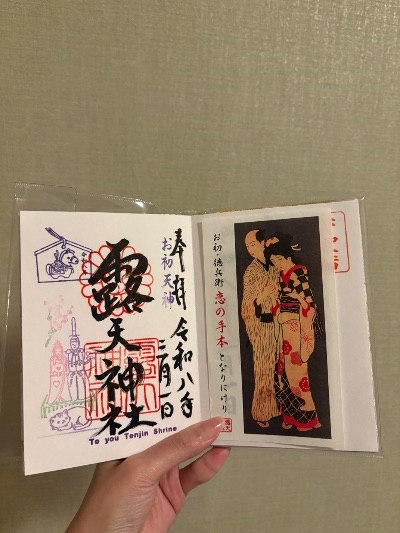 奉拝
お初天神
令和八年
二月一日
露天神社
To you Tenjin Shrine
お初・徳兵衛
恋の手本
となりにけり